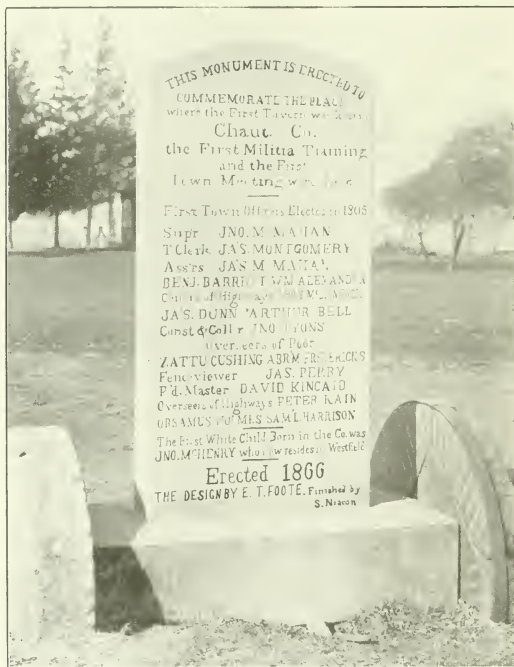 THIS MONUMENT IS ERECTED TO
COMMEMORATE THE PLACE
where the First Tavern was
Chaut. Co.
the First Militia Training
and the First
Town Meeting were
First Town Officers Elected in 1805
Sup'r JNO. M MAHAN
T Clerk JA'S. MONTGOMERY
Ass'rs JA'S M MAHAN
BENJ. BARRETT WM ALEXANDER
Highways
JA'S. DUNN ARTHUR BELL
Const & Coll'r JNO. LYONS
Overseers of Poor
ZATTU CUSHING ABRM FREDERICKS
Fence viewer JAS. PERRY
P'd. Master DAVID KINCAID
Overseers of Highways PETER KAIN
ORSAMUS HOLMES SAM'L HARRISON
The First White Child Born in the Co. was
JNO. McHENRY who now resides in Westfield
Erected 1866
THE DESIGN BY E. T. FOOTE. Finished by
S.